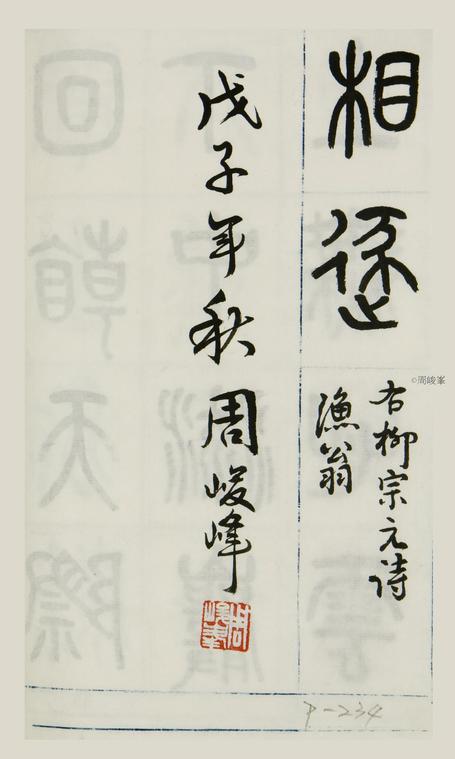 相逐
右柳宗元詩
漁翁
戊子年秋周峻峰
周峻峯
©周峻峯
P-234